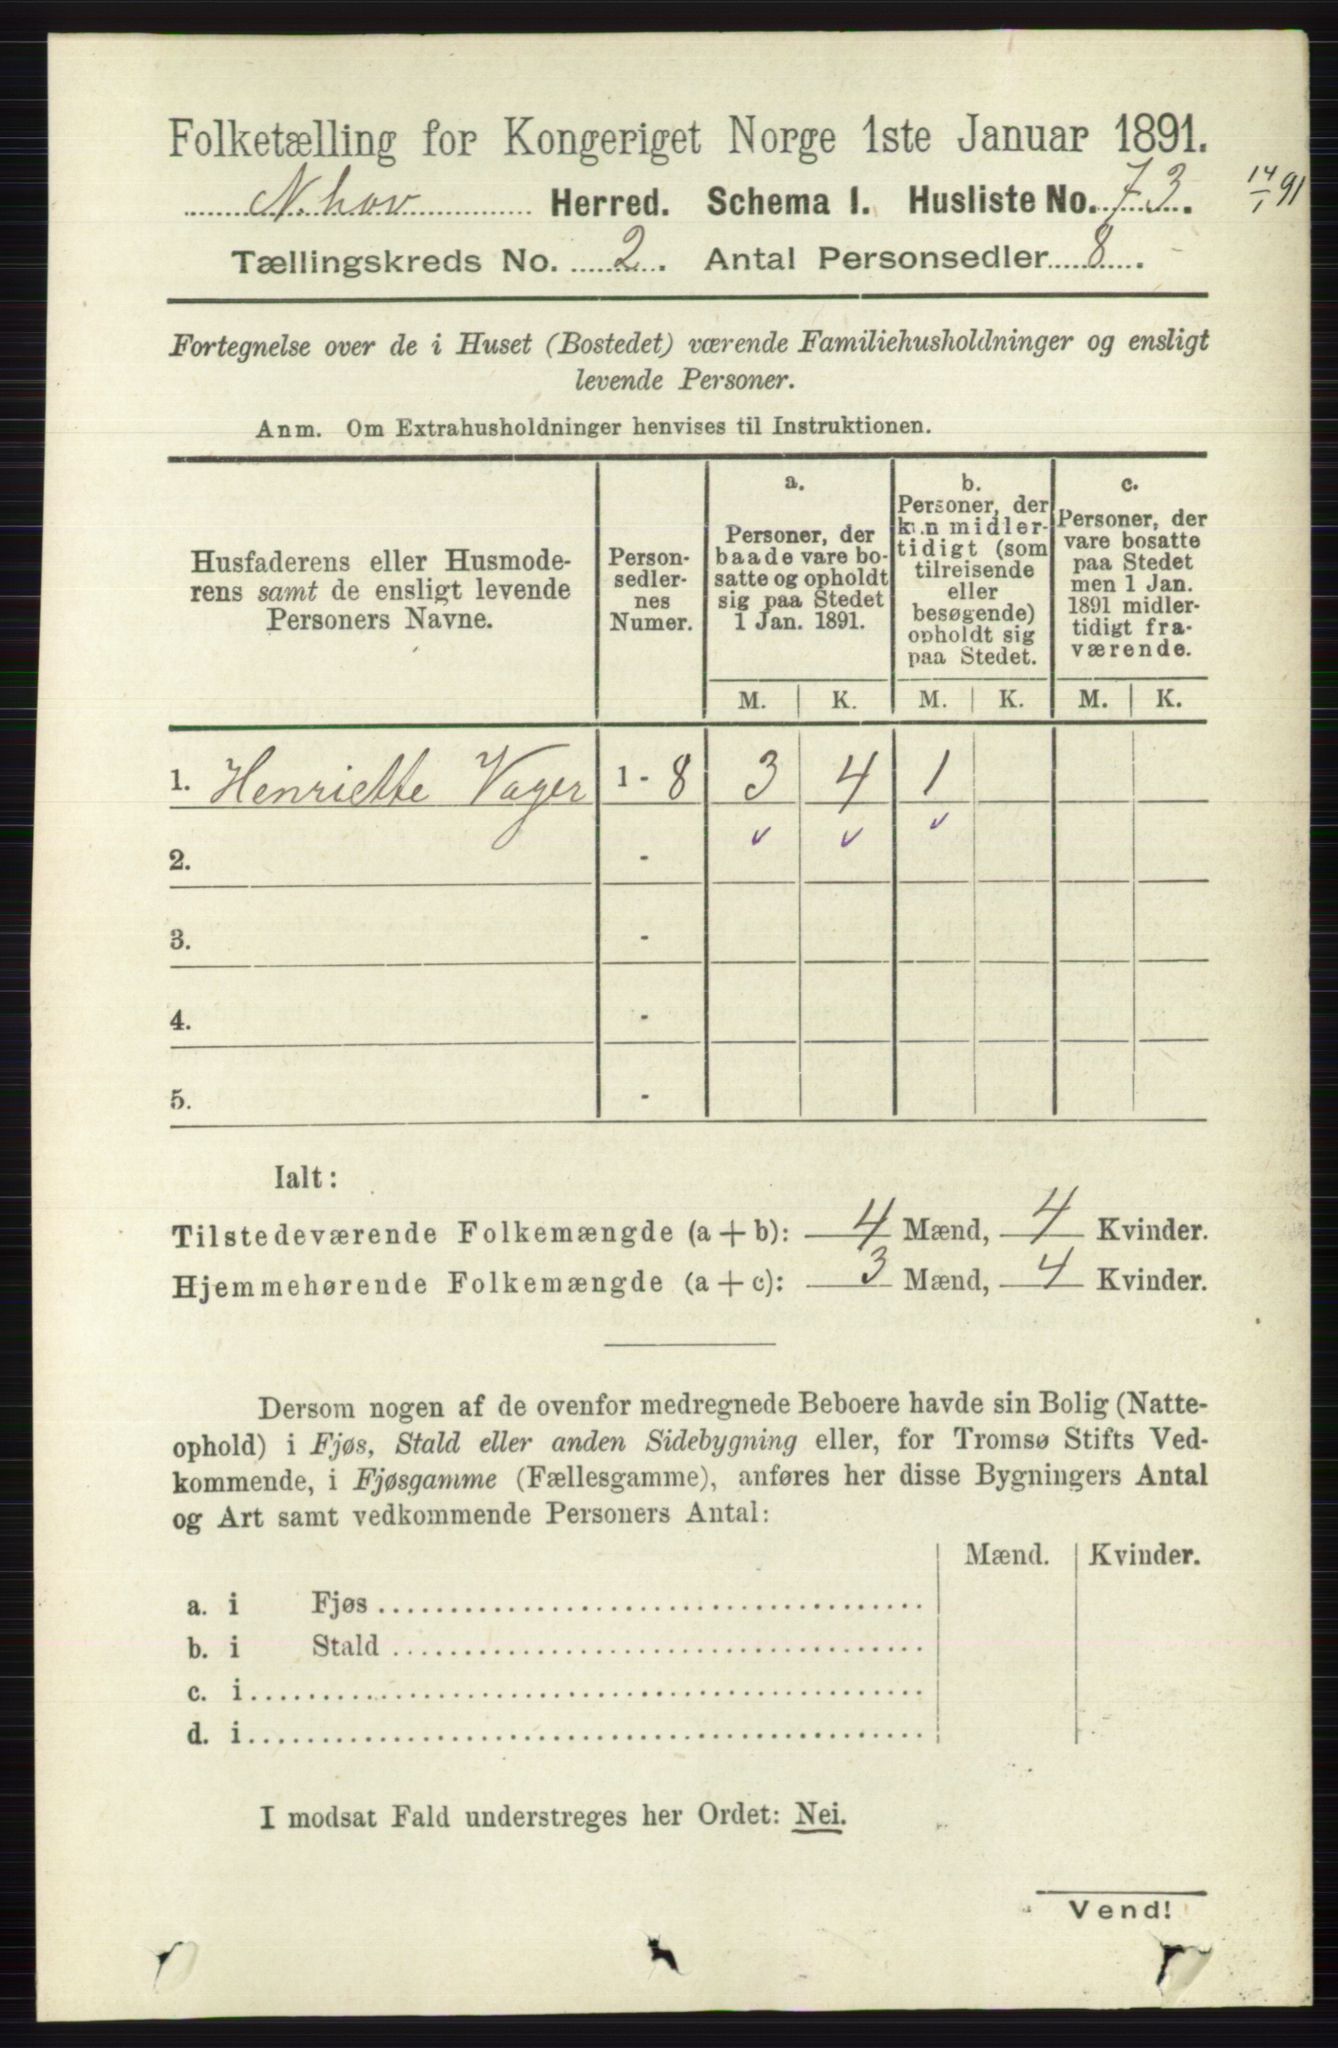 Folketælling for Kongeriget Norge 1ste Januar 1891.
N. hov Herred. Schema I. Husliste No. 73. 14/1 91
Tællingskreds No. 2. Antal Personsedler 8.
Fortegnelse over de i Huset (Bostedet) værende Familiehusholdninger og ensligt
levende Personer.
Anm. Om Extrahusholdninger henvises til Instruktionen.
Husfaderens eller Husmode-
rens samt de ensligt levende
Personers Navne.
Person-
sedler-
nes
Numer.
a.
Personer, der
baade vare bo-
satte og opholdt
sig paa Stedet
1 Jan. 1891.
b.
Personer, der
kun midler-
tidigt (som
tilreisende
eller
besøgende)
opholdt sig
paa Stedet.
c.
Personer, der
vare bosatte
paa Stedet
men 1 Jan.
1891 midler-
tidigt fra-
værende.
M. K. M. K. M. K.
1. Henriette Vager 1 - 8 3 4 1
2. -
3. -
4. -
5. -
Ialt:
Tilstedeværende Folkemængde (a + b): 4 Mænd, 4 Kvinder.
Hjemmehørende Folkemængde (a + c): 3 Mænd, 4 Kvinder.
Dersom nogen af de ovenfor medregnede Beboere havde sin Bolig (Natte-
ophold) i Fjøs, Stald eller anden Sidebygning eller, for Tromsø Stifts Ved-
kommende, i Fjøsgamme (Fællesgamme), anføres her disse Bygningers Antal
og Art samt vedkommende Personers Antal:
Mænd. Kvinder.
a. i Fjøs
b. i Stald
c. i
d. i
I modsat Fald understreges her Ordet: Nei.
Vend!